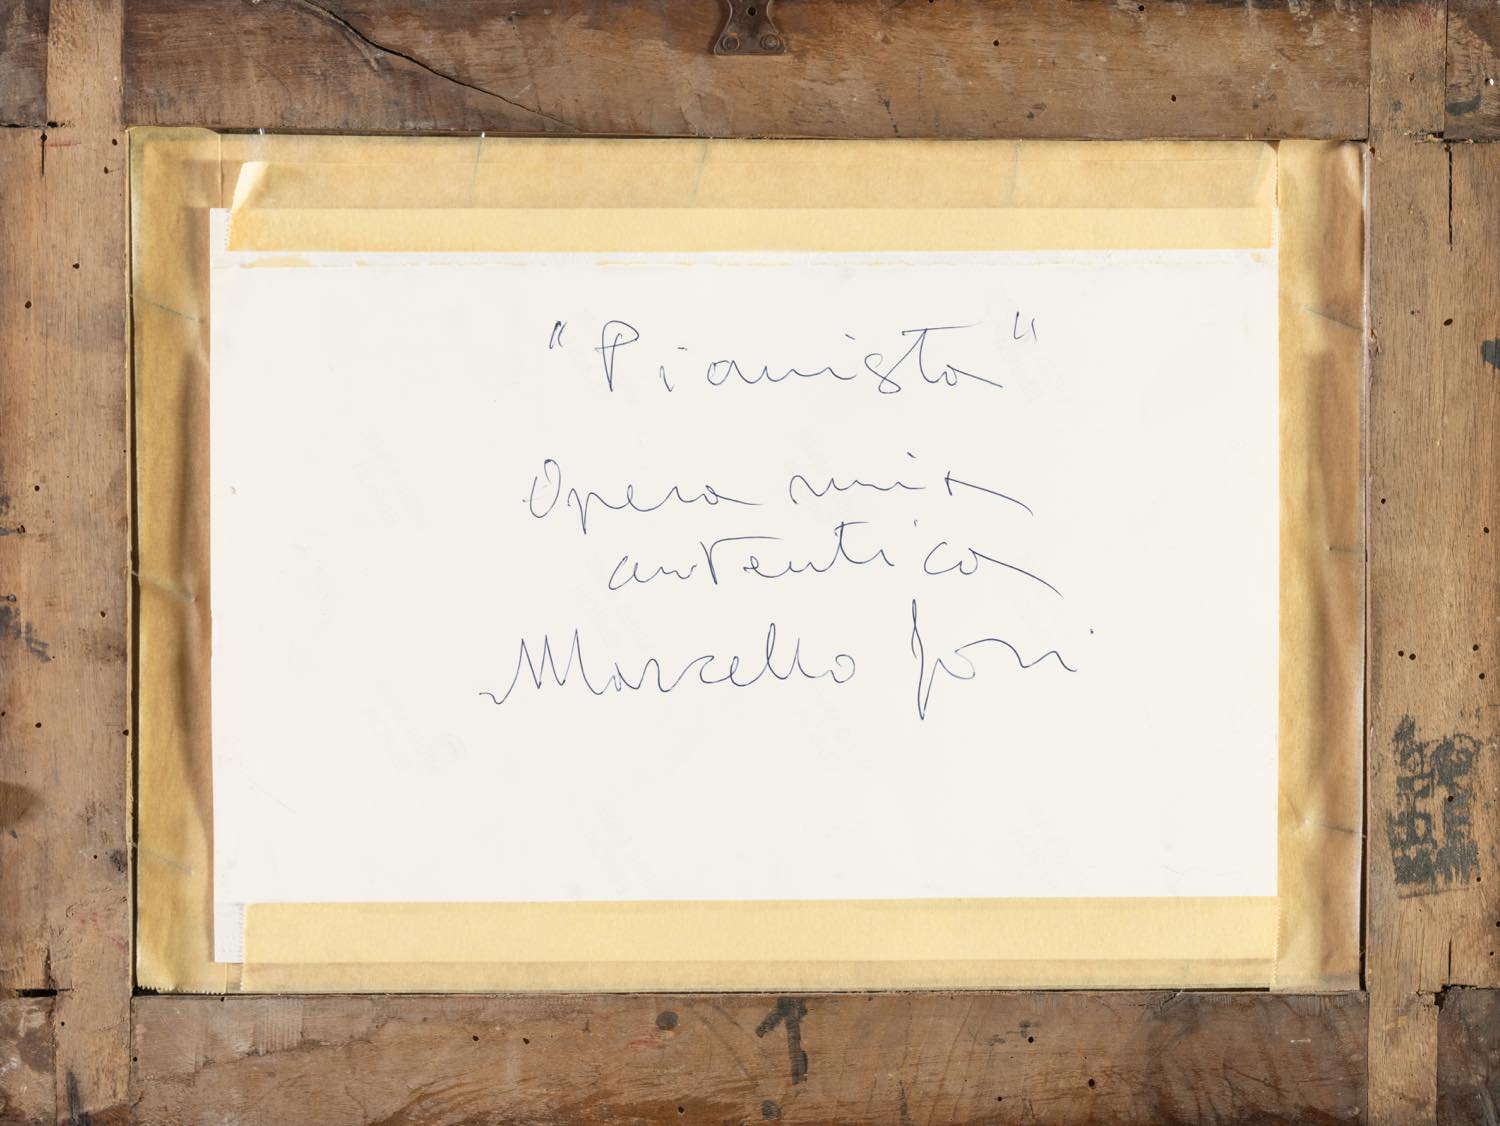 "Pianista"
Opera mia
autentica
Marcello Jori
1